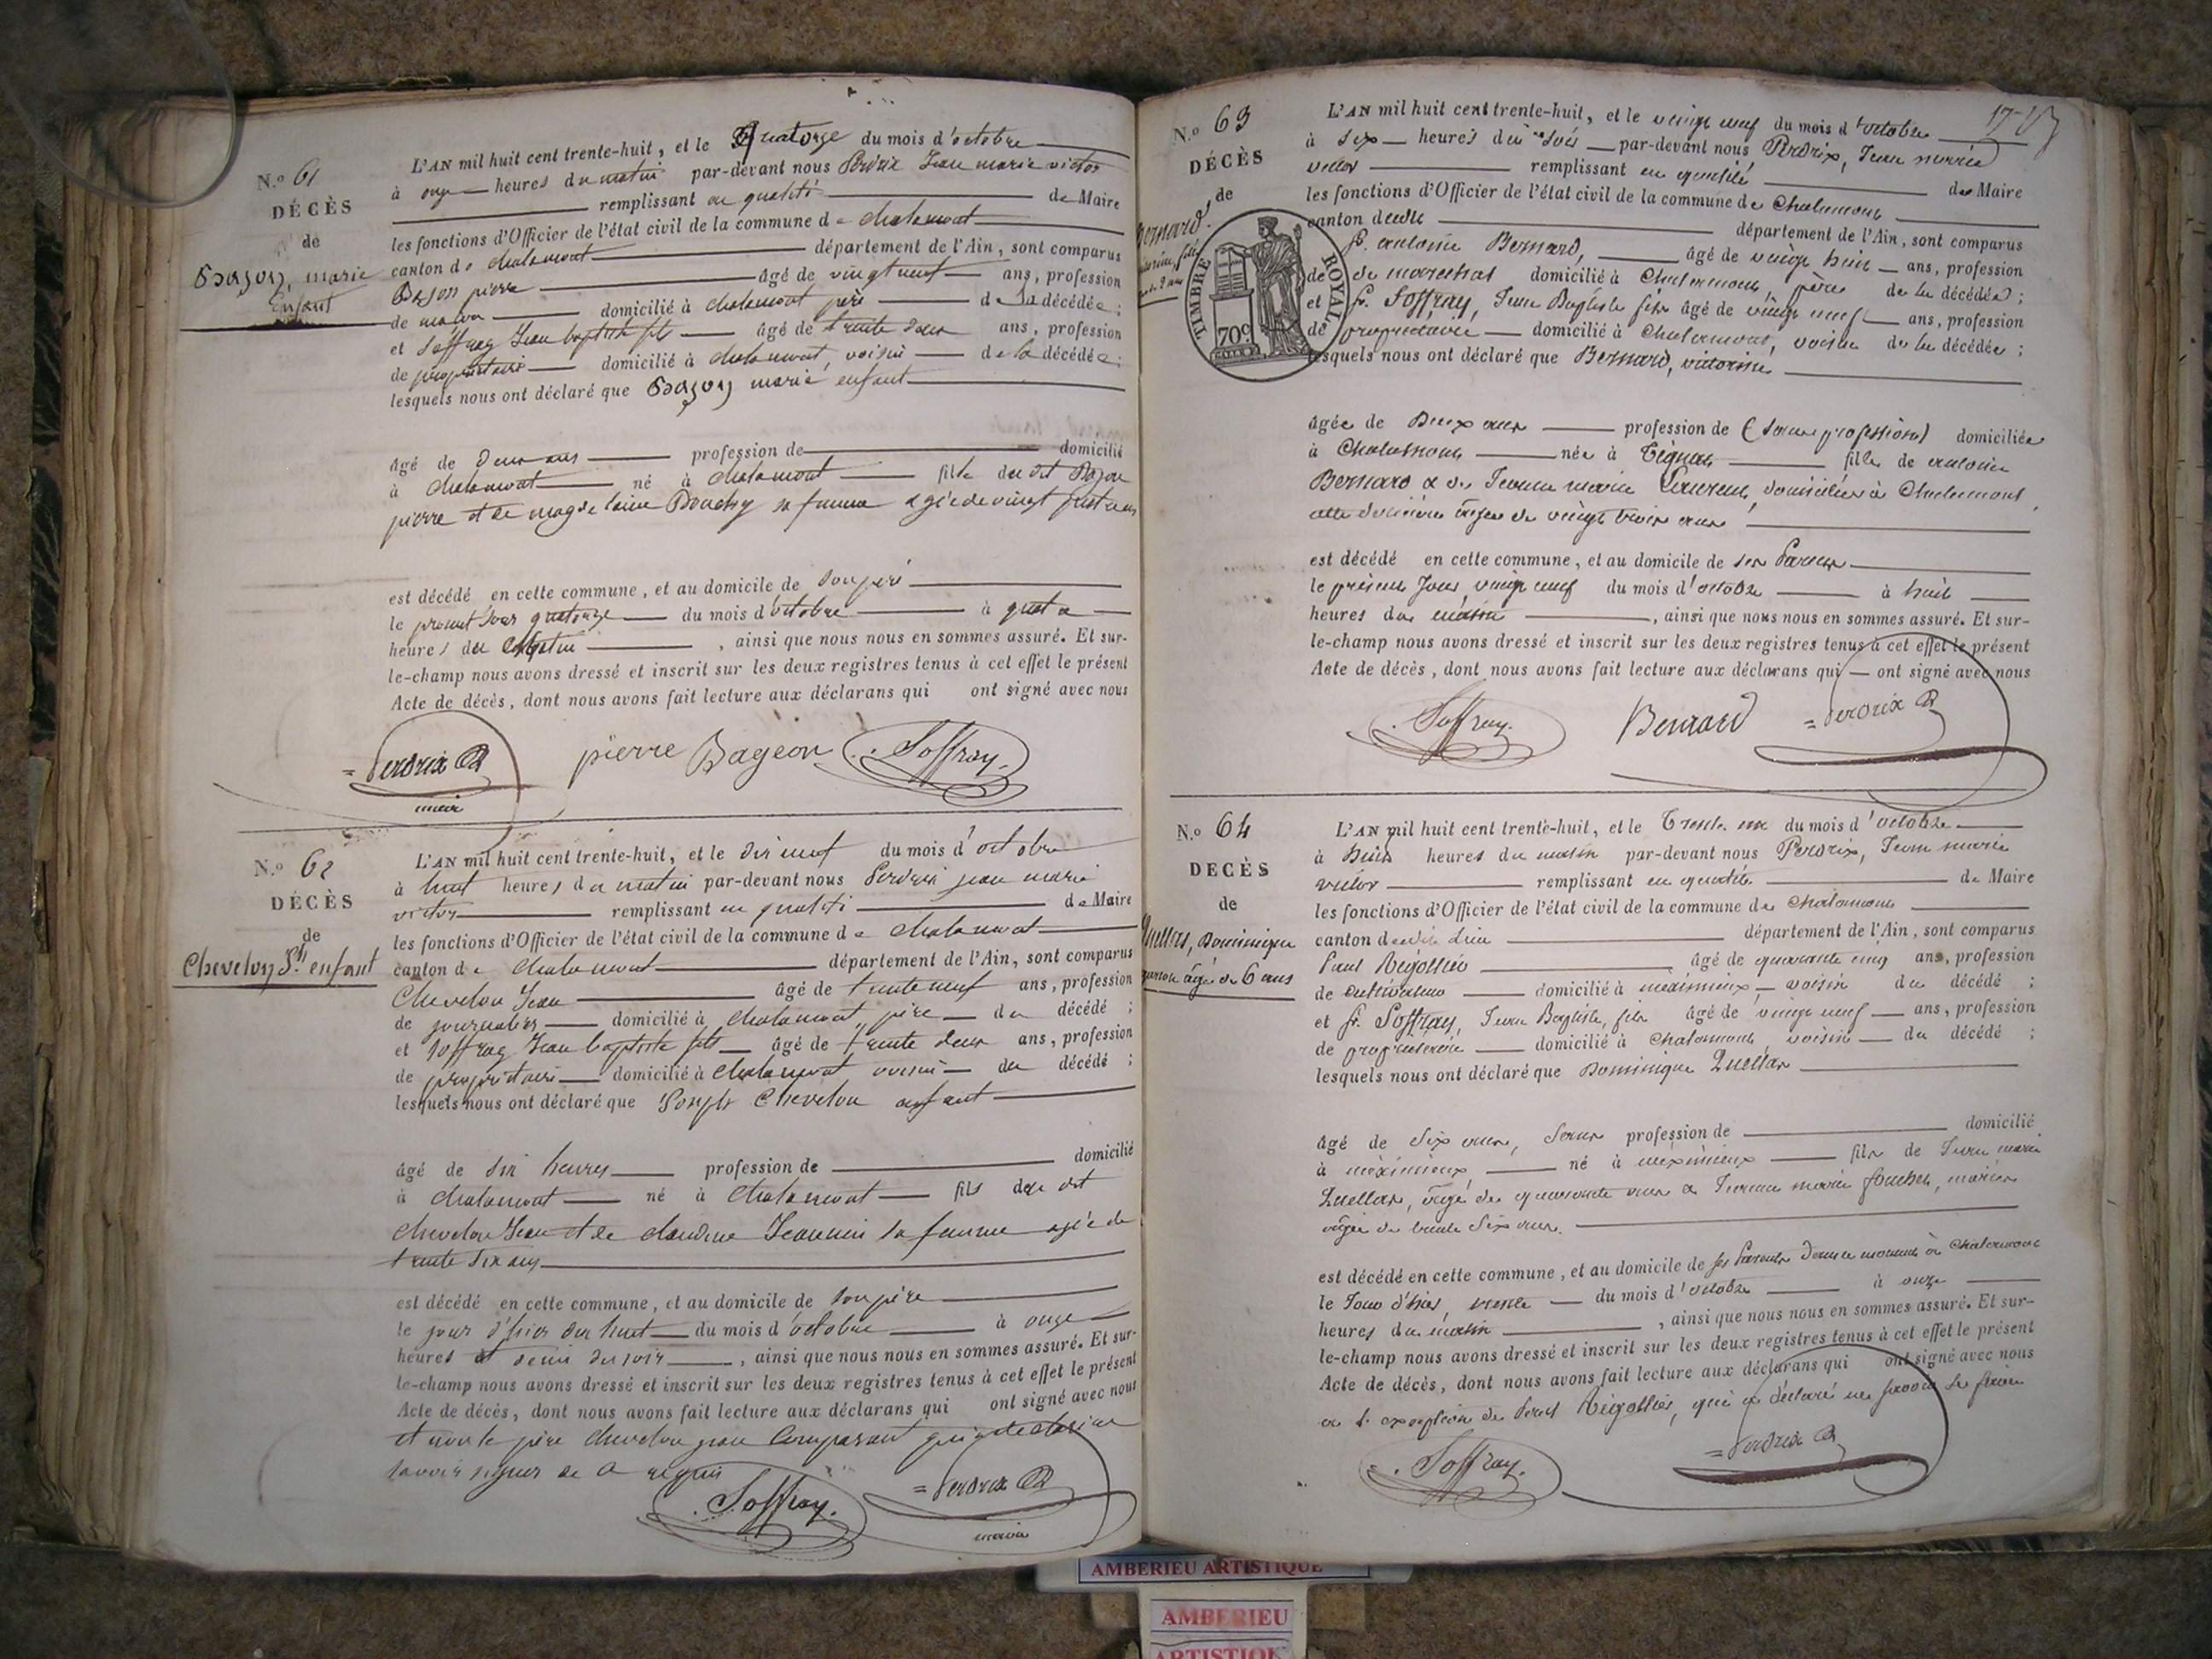 N.º 61
DÉCÈS
de
Bajon, marie
Enfant
L'AN mil huit cent trente-huit, et le Quatorze du mois d'octobre
à onze heures du matin par-devant nous Perdrix Jean marie victor
remplissant en qualité de Maire
les fonctions d'Officier de l'état civil de la commune de chalamont
canton de chalamont département de l'Ain, sont comparus
Bajon pierre âgé de vingt neuf ans, profession
de domicilié à chalamont père de la décédée ;
et Soffray Jean baptiste fils âgé de trente deux ans, profession
de propriétaire domicilié à chalamont, voisin de la décédée ;
lesquels nous ont déclaré que Bajon marie enfant
âgé de deux ans profession de domicilié
à chalamont né à chalamont fille du dit Bajon
pierre et de magdelaine sa femme agée de vingt huit ans
est décédé en cette commune, et au domicile de son père
le présent jour quatorze du mois d'octobre à quatre
heures du Matin , ainsi que nous nous en sommes assuré. Et sur-
le-champ nous avons dressé et inscrit sur les deux registres tenus à cet effet le présent
Acte de décès, dont nous avons fait lecture aux déclarans qui ont signé avec nous
Perdrix pierre Bageon Soffray
maire
N.º 62
DÉCÈS
de
Chevelon Jh enfant
L'AN mil huit cent trente-huit, et le dix neuf du mois d'octobre
à huit heures du matin par-devant nous Perdrix jean marie
victor remplissant en qualité de Maire
les fonctions d'Officier de l'état civil de la commune de chalamont
canton de chalamont département de l'Ain, sont comparus
Chevelon Jean âgé de trente neuf ans, profession
de journalier domicilié à chalamont, père du décédé ;
et Soffray Jean baptiste fils âgé de trente deux ans, profession
de propriétaire domicilié à chalamont voisin du décédé ;
lesquels nous ont déclaré que Joseph Chevelon enfant
âgé de dix heures profession de domicilié
à chalamont né à chalamont fils du dit
chevelon Jean et de claudine Jeannin sa femme agée de
trente six ans
est décédé en cette commune, et au domicile de son père
le jour d'hier dix huit du mois d'octobre à onze
heures et demi du soir , ainsi que nous nous en sommes assuré. Et sur-
le-champ nous avons dressé et inscrit sur les deux registres tenus à cet effet le présent
Acte de décès, dont nous avons fait lecture aux déclarans qui ont signé avec nous
et non le père chevelon jean comparant qui a déclaré ne
savoir signer de ce requis
Soffray Perdrix
maire
N.º 63
DÉCÈS
de
Bernard,
TIMBRE ROYAL
70 c.
L'AN mil huit cent trente-huit, et le vingt neuf du mois d'octobre
à six heures du soir par-devant nous Perdrix, Jean marie
victor remplissant en qualité de Maire
les fonctions d'Officier de l'état civil de la commune de Chalamont
canton département de l'Ain, sont comparus
sr. antoine Bernard, âgé de vingt huit ans, profession
de marechal domicilié à Chalamont, père de la décédée ;
et sr. Soffray, Jean Baptiste fils âgé de vingt neuf ans, profession
de propriétaire domicilié à Chalamont, voisin de la décédée ;
lesquels nous ont déclaré que Bernard, victorine
âgée de Deux ans profession de (sans profession) domiciliée
à Chalamont née à fille de antoine
Bernard & de Jeanne marie Laurent, domiciliés à Chalamont,
cette dernière âgée de vingt trois ans
est décédé en cette commune, et au domicile de ses Parens
le présent Jour, vingt neuf du mois d'octobre à huit
heures du matin , ainsi que nous nous en sommes assuré. Et sur-
le-champ nous avons dressé et inscrit sur les deux registres tenus à cet effet le présent
Acte de décès, dont nous avons fait lecture aux déclarans qui ont signé avec nous
Soffray. Bernard Perdrix
N.º 64
DÉCÈS
de
Quellard, Dominique
garçon âgé de 6 ans
L'AN mil huit cent trente-huit, et le Trente un du mois d'octobre
à huit heures du matin par-devant nous Perdrix, Jean marie
victor remplissant en qualité de Maire
les fonctions d'Officier de l'état civil de la commune de Chalamont
canton dudit lieu département de l'Ain, sont comparus
Paul Rigollier âgé de quarante cinq ans, profession
de cultivateur domicilié à meximieux, voisin du décédé ;
et sr. Soffray, Jean Baptiste, fils âgé de vingt neuf ans, profession
de propriétaire domicilié à Chalamont, voisin du décédé ;
lesquels nous ont déclaré que Dominique Quellar
âgé de six ans, sans profession de domicilié
à meximieux, né à meximieux fils de Jean marie
Quellar, âgé de quarante ans & Jeanne marie, mariés
âgée de trente six ans.
est décédé en cette commune, et au domicile de ses Parents à Chalamont
le Jour d'hier, trente du mois d'octobre à onze
heures du matin , ainsi que nous nous en sommes assuré. Et sur-
le-champ nous avons dressé et inscrit sur les deux registres tenus à cet effet le présent
Acte de décès, dont nous avons fait lecture aux déclarans qui ont signé avec nous
à l'exception de Paul Rigollier, qui a déclaré ne savoir le faire
Soffray. Perdrix
AMBERIEU ARTISTIQUE
AMBERIEU
ARTISTIQUE